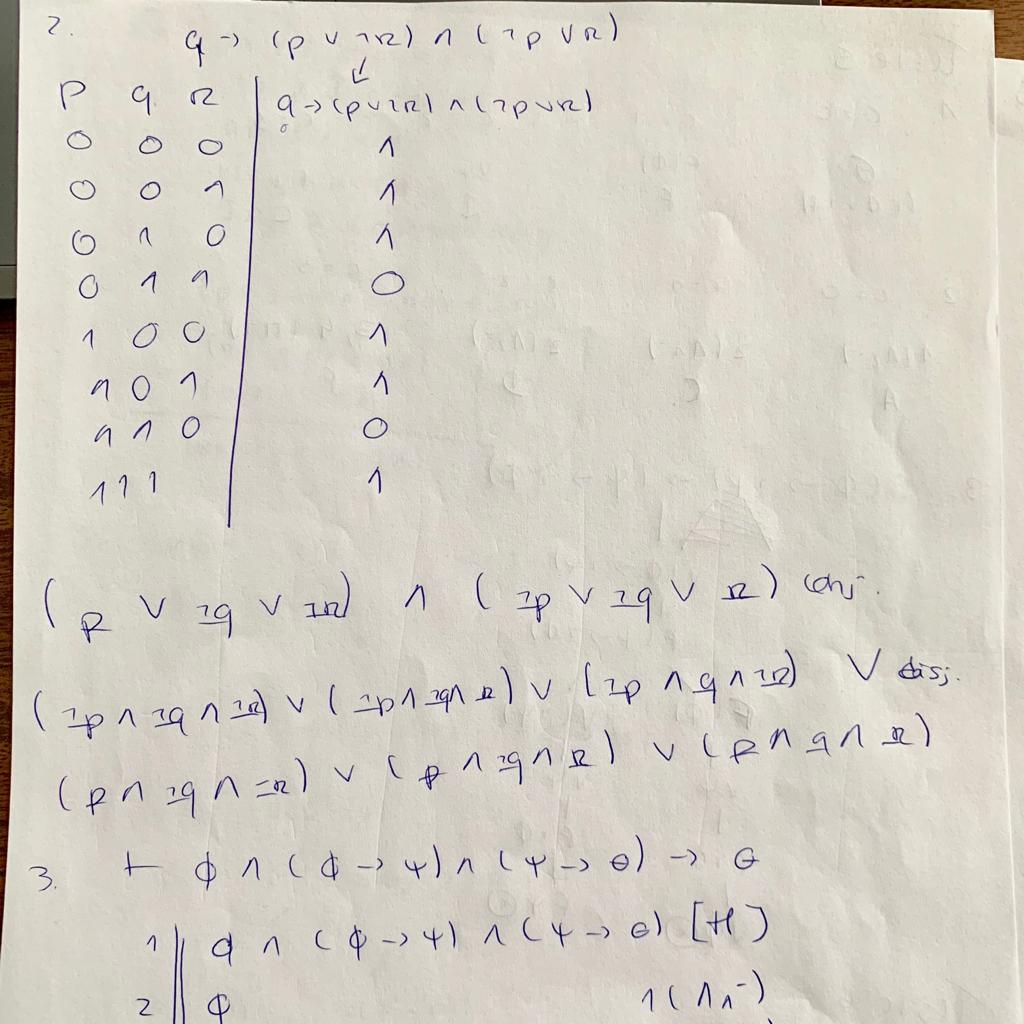 2.
q → (p ∨ ¬r) ∧ (¬p ∨ r)
↙
p q r | q → (p ∨ ¬r) ∧ (¬p ∨ r)
0 0 0 | 1
0 0 1 | 1
0 1 0 | 1
0 1 1 | 0
1 0 0 | 1
1 0 1 | 1
1 1 0 | 0
1 1 1 | 1
(p ∨ ¬q ∨ ¬r) ∧ (¬p ∨ ¬q ∨ r) conj.
(¬p ∧ ¬q ∧ ¬r) ∨ (¬p ∧ ¬q ∧ r) ∨ (¬p ∧ q ∧ ¬r) ∨ disj.
(p ∧ ¬q ∧ ¬r) ∨ (p ∧ ¬q ∧ r) ∨ (p ∧ q ∧ r)
3. ⊢ ϕ ∧ (ϕ → ψ) ∧ (ψ → θ) → θ
1 || ϕ ∧ (ϕ → ψ) ∧ (ψ → θ) [H]
2 || ϕ 1 (∧1⁻)